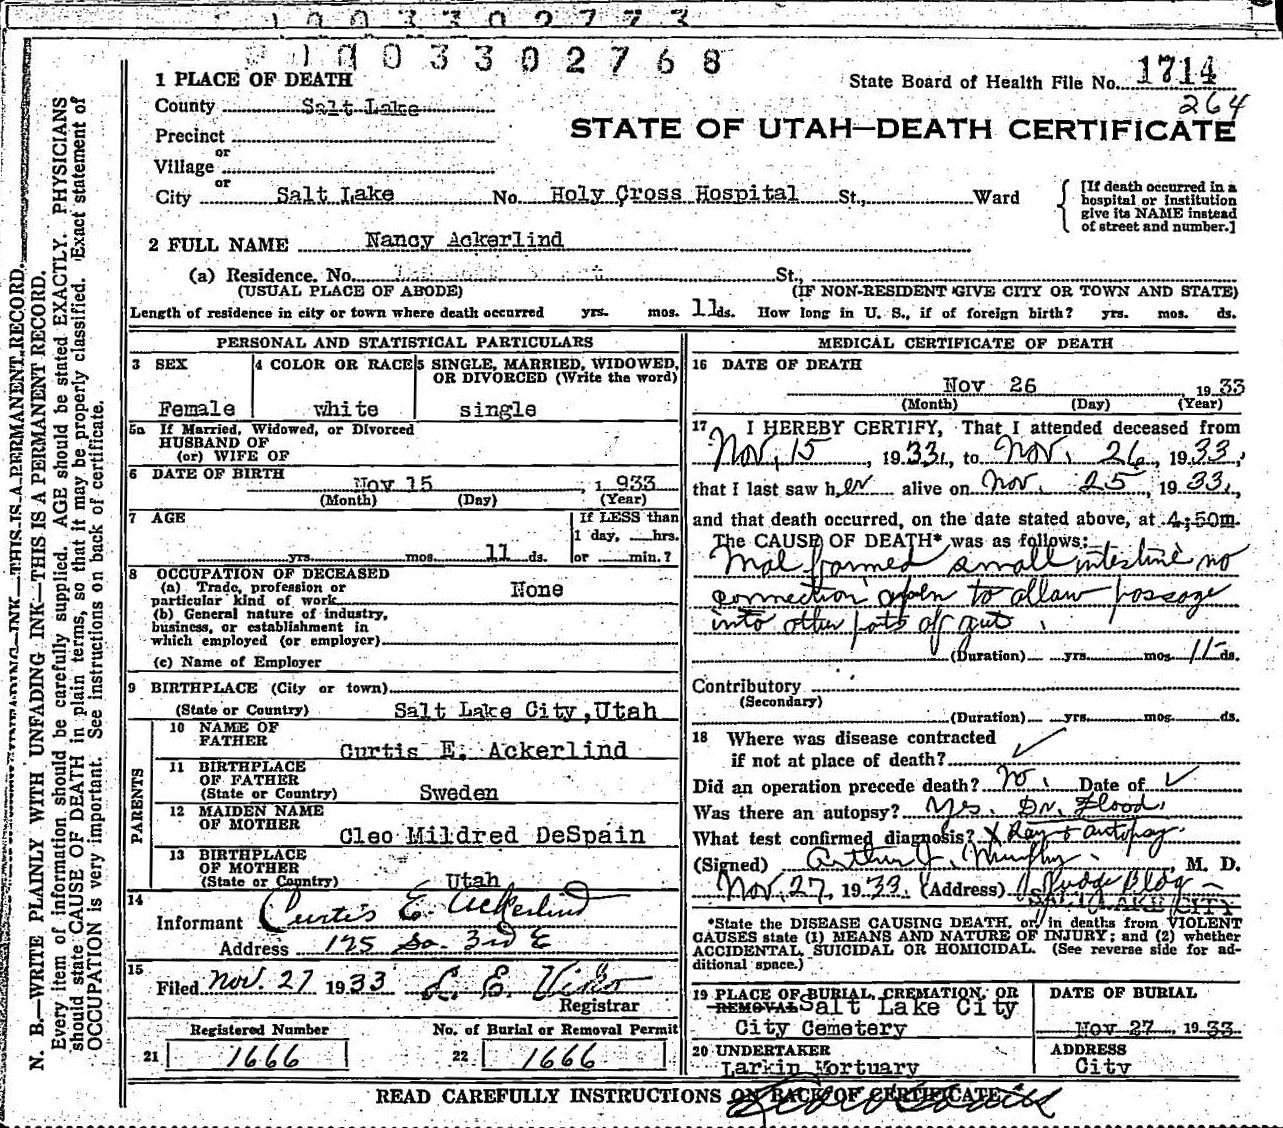 1003302773
1003302768
1 PLACE OF DEATH
State Board of Health File No. 1714
264
County Salt Lake
STATE OF UTAH—DEATH CERTIFICATE
Precinct
or
Village
or
City Salt Lake No. Holy Cross Hospital St., Ward
[If death occurred in a hospital or institution give its NAME instead of street and number.]
2 FULL NAME Nancy Ackerlind
(a) Residence. No. St.,
(USUAL PLACE OF ABODE) (IF NON-RESIDENT GIVE CITY OR TOWN AND STATE)
Length of residence in city or town where death occurred yrs. mos. 11 ds. How long in U. S., if of foreign birth? yrs. mos. ds.
PERSONAL AND STATISTICAL PARTICULARS
3 SEX
Female
4 COLOR OR RACE
white
5 SINGLE, MARRIED, WIDOWED,
OR DIVORCED (Write the word)
single
5a If Married, Widowed, or Divorced
HUSBAND OF
(or) WIFE OF
6 DATE OF BIRTH
Nov 15, 1933
(Month) (Day) (Year)
7 AGE
yrs. mos. 11 ds.
If LESS than
1 day, hrs.
or min.?
8 OCCUPATION OF DECEASED
(a) Trade, profession or
particular kind of work None
(b) General nature of industry,
business, or establishment in
which employed (or employer)
(c) Name of Employer
9 BIRTHPLACE (City or town)
(State or Country) Salt Lake City, Utah
PARENTS
10 NAME OF
FATHER Curtis E. Ackerlind
11 BIRTHPLACE
OF FATHER
(State or Country) Sweden
12 MAIDEN NAME
OF MOTHER Cleo Mildred DeSpain
13 BIRTHPLACE
OF MOTHER
(State or Country) Utah
14
Informant Curtis E. Ackerlind
Address 125 So. 3rd E
15
Filed Nov. 27 1933
Registrar
Registered Number No. of Burial or Removal Permit
21 1666 22 1666
MEDICAL CERTIFICATE OF DEATH
16 DATE OF DEATH
Nov 26 1933
(Month) (Day) (Year)
17 I HEREBY CERTIFY, That I attended deceased from
Nov. 15, 1933, to Nov. 26, 1933,
that I last saw her alive on Nov. 25, 1933,
and that death occurred, on the date stated above, at 4:50m.
The CAUSE OF DEATH* was as follows:
Mal formed small intestine no
connection open to allow passage
into other parts of gut.
(Duration) yrs. mos. 11 ds.
Contributory
(Secondary)
(Duration) yrs. mos. ds.
18 Where was disease contracted
if not at place of death? ✓
Did an operation precede death? No. Date of ✓
Was there an autopsy? Yes. Dr. Flood.
What test confirmed diagnosis? X Ray & autopsy.
(Signed) Arthur J. Murphy, M. D.
Nov. 27, 1933. (Address) Judge Bldg
SALT LAKE CITY
*State the DISEASE CAUSING DEATH, or, in deaths from VIOLENT
CAUSES state (1) MEANS AND NATURE OF INJURY; and (2) whether
ACCIDENTAL, SUICIDAL OR HOMICIDAL. (See reverse side for ad-
ditional space.)
19 PLACE OF BURIAL, CREMATION, OR
REMOVAL Salt Lake City
City Cemetery
DATE OF BURIAL
Nov 27, 1933
20 UNDERTAKER
Larkin Mortuary
ADDRESS
City
READ CAREFULLY INSTRUCTIONS ON BACK OF CERTIFICATE
N. B.—WRITE PLAINLY WITH UNFADING INK—THIS IS A PERMANENT RECORD.
Every item of information should be carefully supplied. AGE should be stated EXACTLY. PHYSICIANS
should state CAUSE OF DEATH in plain terms, so that it may be properly classified. Exact statement of
OCCUPATION is very important. See instructions on back of certificate.